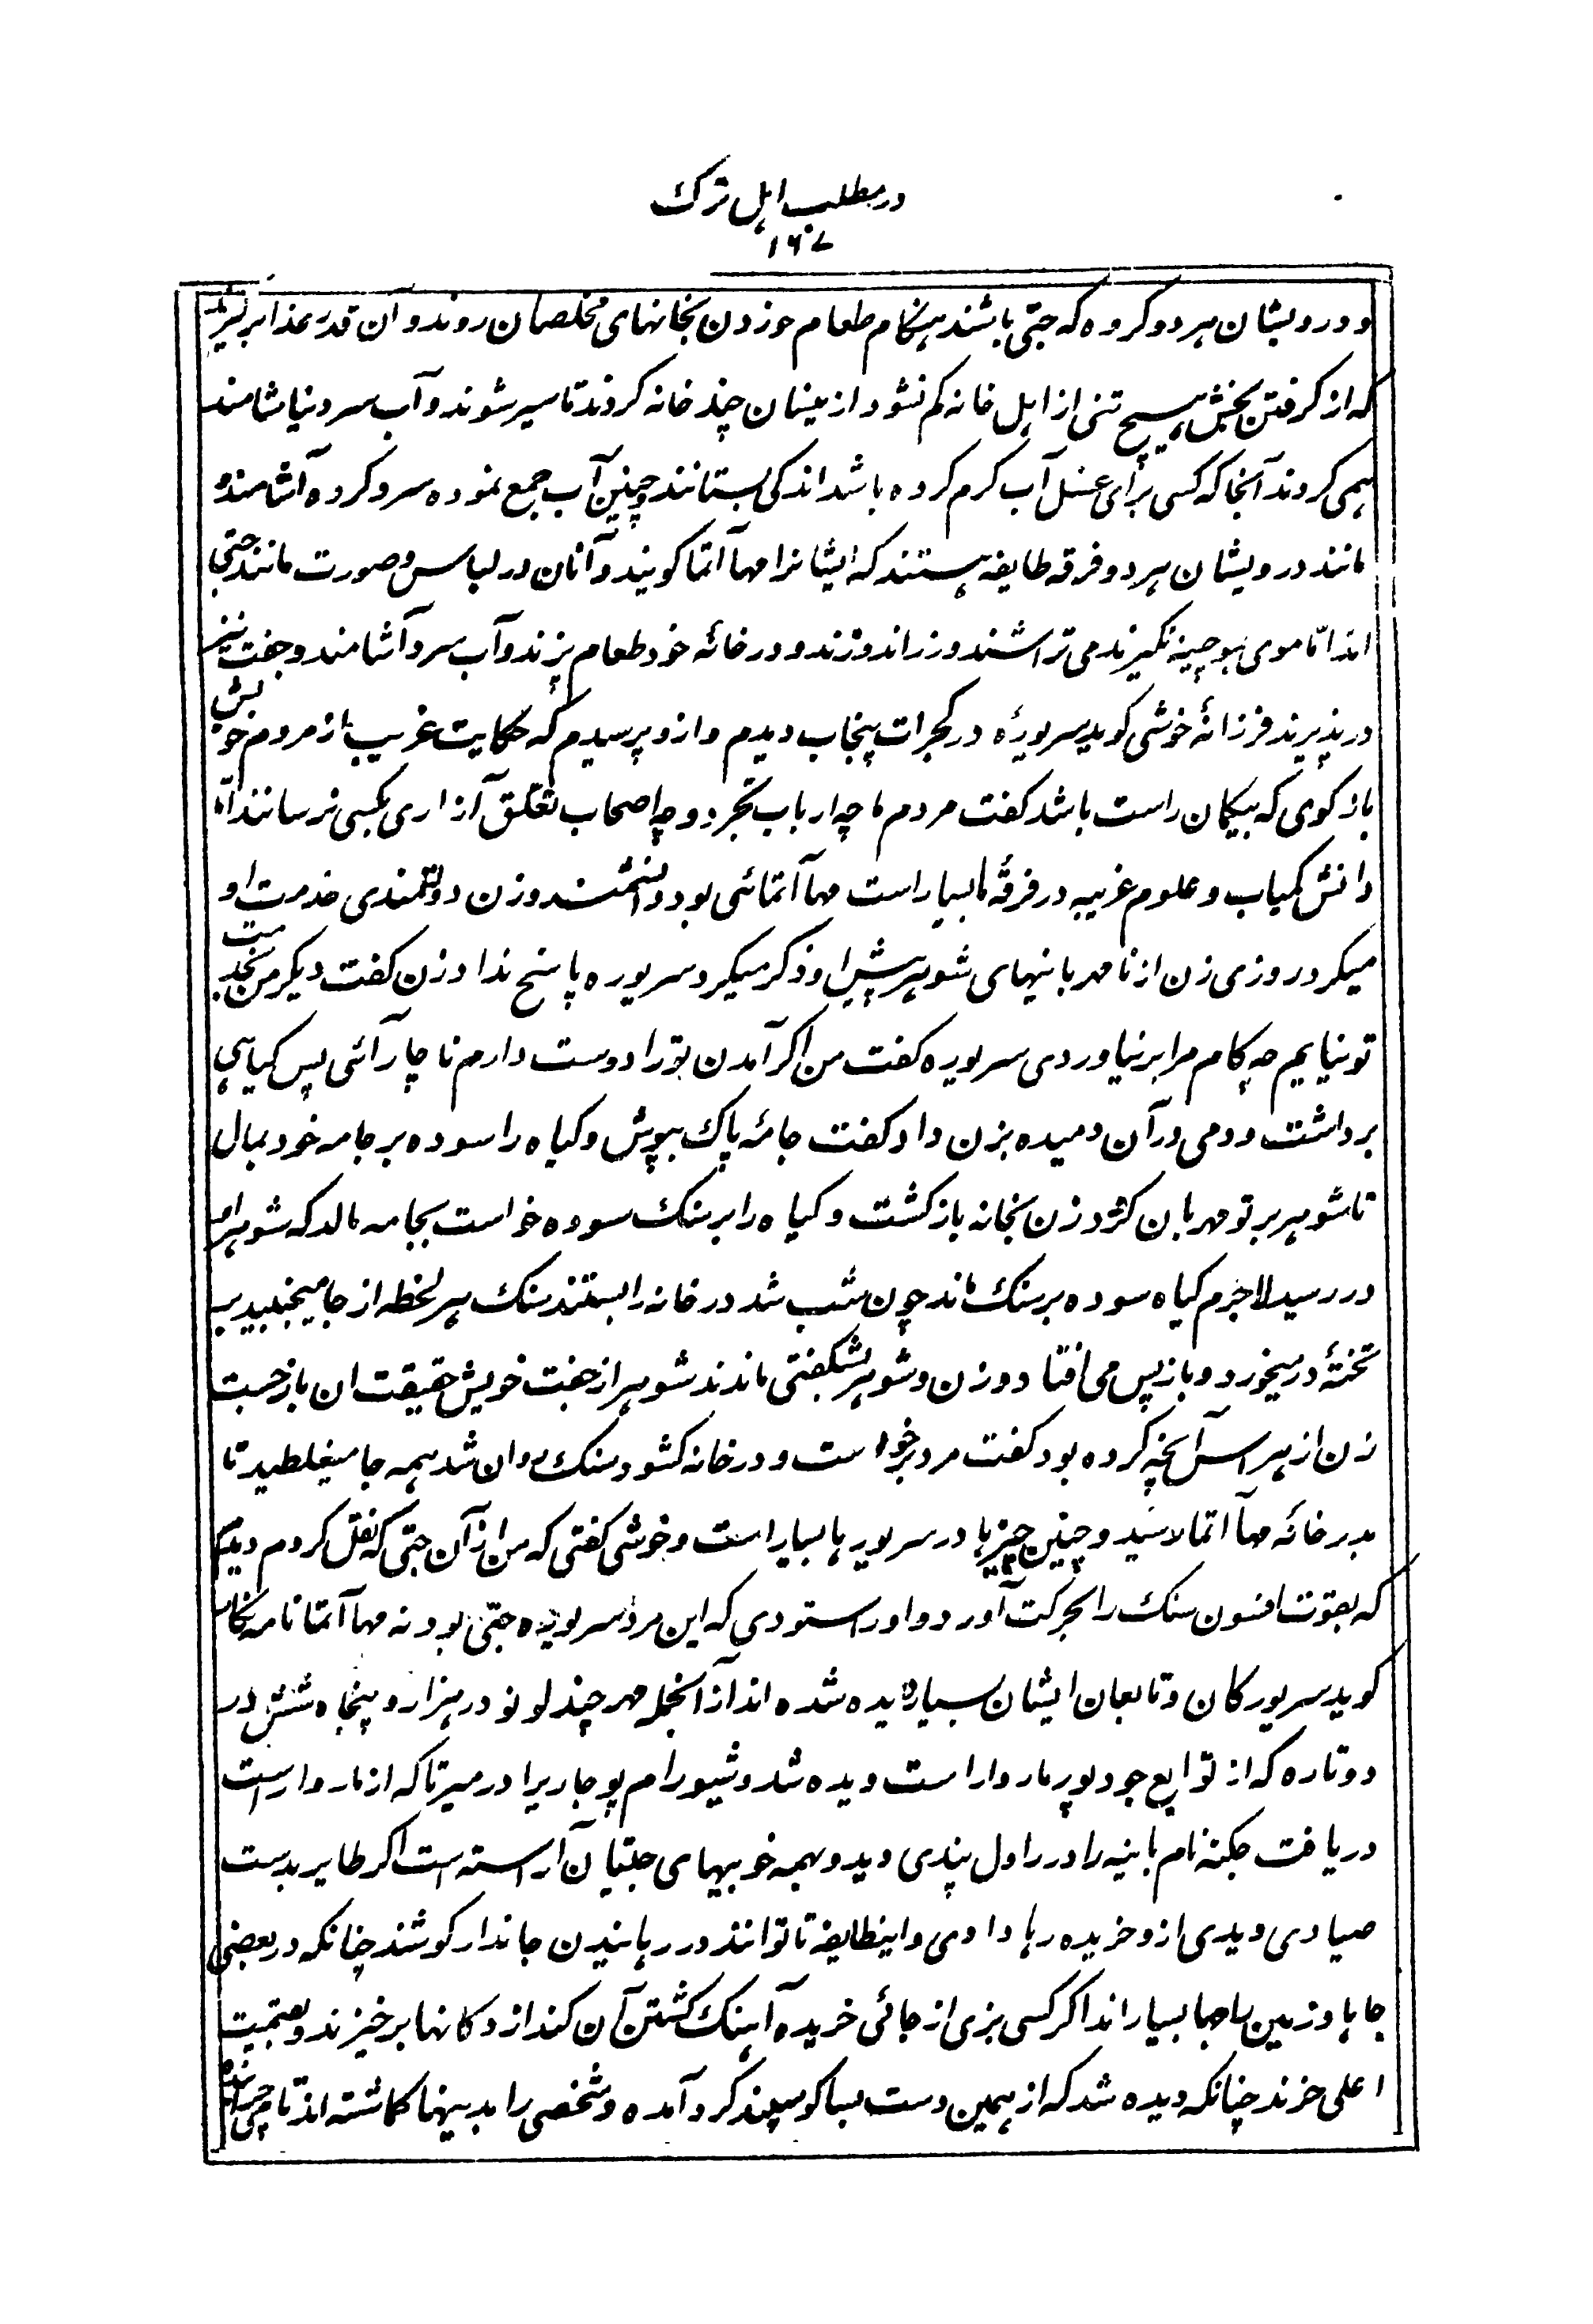 در مطلب اهل ترک
۱۶۷
و درویشان هر دو کروه که جتی باشند هنکام طعام خوردن بخانهای مخلصان روند و آن قدر غذا برکیرند
که از کرفتن بخش هیچ تنی از اهل خانه کم نشود از ینسان چند خانه کردند تا سیر شوند و آب سرد نیاشامند
همی کردند آنجا که کسی برای غسل آب کرم کرده باشد اندکی بستانند و چنین آب جمع نموده سرد کرده آشامند و
مانند درویشان هر دو فرقه طایفه هستند که ایشانرا مهاآتما کویند و آنان در لباس و صورت مانند جتی
اند اما موی بموچینه نکیرند می تراشند و زر اندوزند و در خانهٔ خود طعام پزند و آب سرد آشامند و جفت نیز
در پذیرند فرزانهٔ خوشی کوید سریورهٔ در کجرات پنجاب دیدم و ازو پرسیدم که حکایت غریب از مردم خویش
باز کوی که بیکمان راست باشد کفت مردم ما چه ارباب تجرد و چه اصحاب تعلق آزاری بکسی نرسانند اما
دانش کمیاب و علوم غریبه در فرقهٔ ما بسیار است مهاآتمائی بود دانشمند و زن دولتمندی خدمت او
میکرد روزی زن از نامهربانیهای شوهر پیش او ذکر میکرد سریوره پاسخ نداد زن کفت دیکر من بخدمت
تو نیایم چه کام مرا بر نیاوردی سریوره کفت من اکر آمدن تو را دوست دارم ناچار آئی پس کیاهی
برداشت و دمی در آن دمیده بزن داد کفت جامهٔ پاک بپوش و کیاه را سوده بر جامه خود بمال
تا شوهر بر تو مهربان کردد زن بخانه بازکشت و کیاه را بر سنک سوده خواست بجامه مالد که شوهر
در رسید لاجرم کیاه سوده بر سنک ماند چون شب شد در خانه را بستند سنک هر لحظه از جا میجنبید بر
تختهٔ در میخورد و باز پس می افتاد و زن و شوهر بشکفتی ماندند شوهر از جفت خویش حقیقت ان بازجست
زن از هراس آنچه کرده بود کفت مرد برخواست و در خانه کشود سنک روان شد همه جا میغلطید تا
بدر خانه مهاآتما رسید و چنین چیزها در سریورها بسیار است و خوشی کفتی که من از آن جتی که نقل کردم دیدم
که بقوت افسون سنک را بحرکت آورد و او را ستودی که این مرد سریوره جتی بود نه مهاآتما نامه نکار
کوید سریورکان و تابعان ایشان بسیار دیده شده اند از آنجمله مهر چند لونو در هزار و پنجاه شش در
دوتاره که از توابع جودپور ماروار است دیده شد و شیورام پوجاریرا در میرتا که از ماروار است
دریافت جکنه نام بانیه را در راول پندی دید و بهمه خوبیهای جتیان آراسته است اکر طایر بدست
صیادی دیدی ازو خریده رها دادی و اینطایفه تا توانند در رهانیدن جاندار کوشند چنانکه در بعضی
جاها و زمین راجها بسیار اند اکر کسی بزی از جائی خریده آهنک کشتن آن کند از دکانها برخیزند و بقیمت
اعلی خرند چنانکه دیده شد که از همین دست بسا کوسپند کرد آمده و شخصی را بدینها کماشته اند تا میچراند